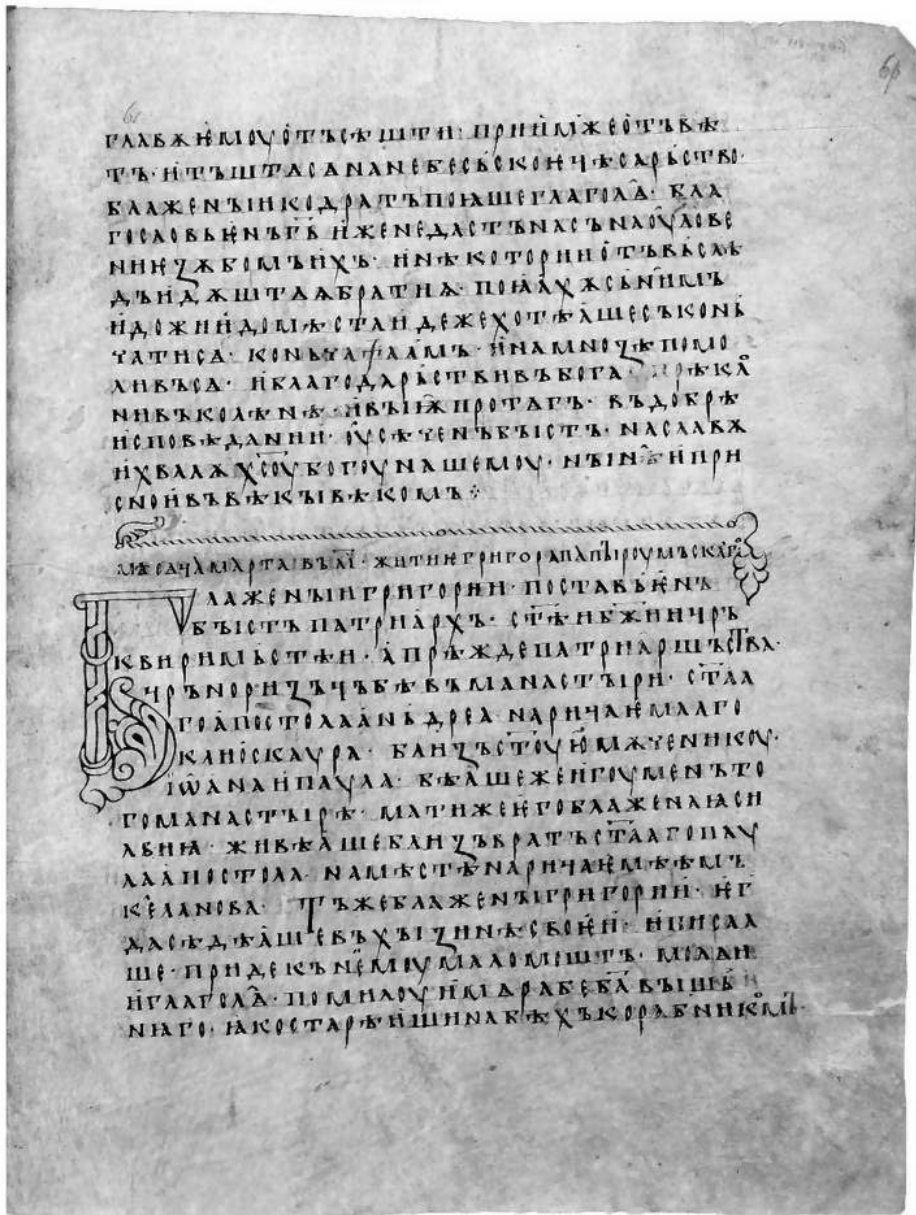 главѫ ѥмоу отъсѣшти· приимѫ же отъвѣ
тъ· и тъшта сѧ на небесьскоѥ ц҄ѣсарьство·
блаженыи кодратъ поꙗше глагол҄ѧ· бла
гословьѥнъ г҃ь иже не дастъ насъ на оуловѥ
ниѥ ѕѫбомъ ихъ· и нѣкотории отъ въслѣ
дъ идѫштаѧ братиѧ· поꙗахѫ съ н҄имь
и дожии до мѣста идеже хотѣаше съконь
чати сѧ· коньча ѱалъмъ· и на мноѕѣ помо
ливъ сѧ· и благодарьствивъ бога· прѣкло
нивъ колѣнѣ· и выѭ протѧгъ· въ добрѣ
исповѣдании· оусѣченъ быстъ· на славѫ
и хвалѫ х҃соу богоу нашемоу· нын҄ѣ и при
сно и въ вѣкы вѣкомъ ⁘
мѣсѧца марта въ а҃і· житиѥ григора папы роумьскаѥго
Блаженыи григории· поставьѥнъ
быстъ патриархъ· ст҃ѣи б҃жии цръ
кви римьстѣи· а прѣжде патриаршьства·
чръноризьць бѣ въ манастыри· ст҃аа
го апостола аньдреа нарицаѥмааго
калиоскаура· близъ ст҃оую мѫченикоу·
іѡана и паула· бѣаше же игоуменъ то
го манастырѣ· мати же ѥго блаженаꙗ си
львиꙗ· живѣаше близъ вратъ ст҃ааго пау
ла апостола на мѣстѣ нарицаѥмѣѥмь
келанова· Тъ же блаженыи григории· ѥг
да сѣдѣаше въ хызинѣ своѥи· и писаа
ше· приде къ н҄емоу маломошть· молѧи
и глагол҄ѧ· помилоуи мѧ рабе б҃а вышь
н҄ꙗго· ꙗко старѣишина бѣхъ корабьникомъ·